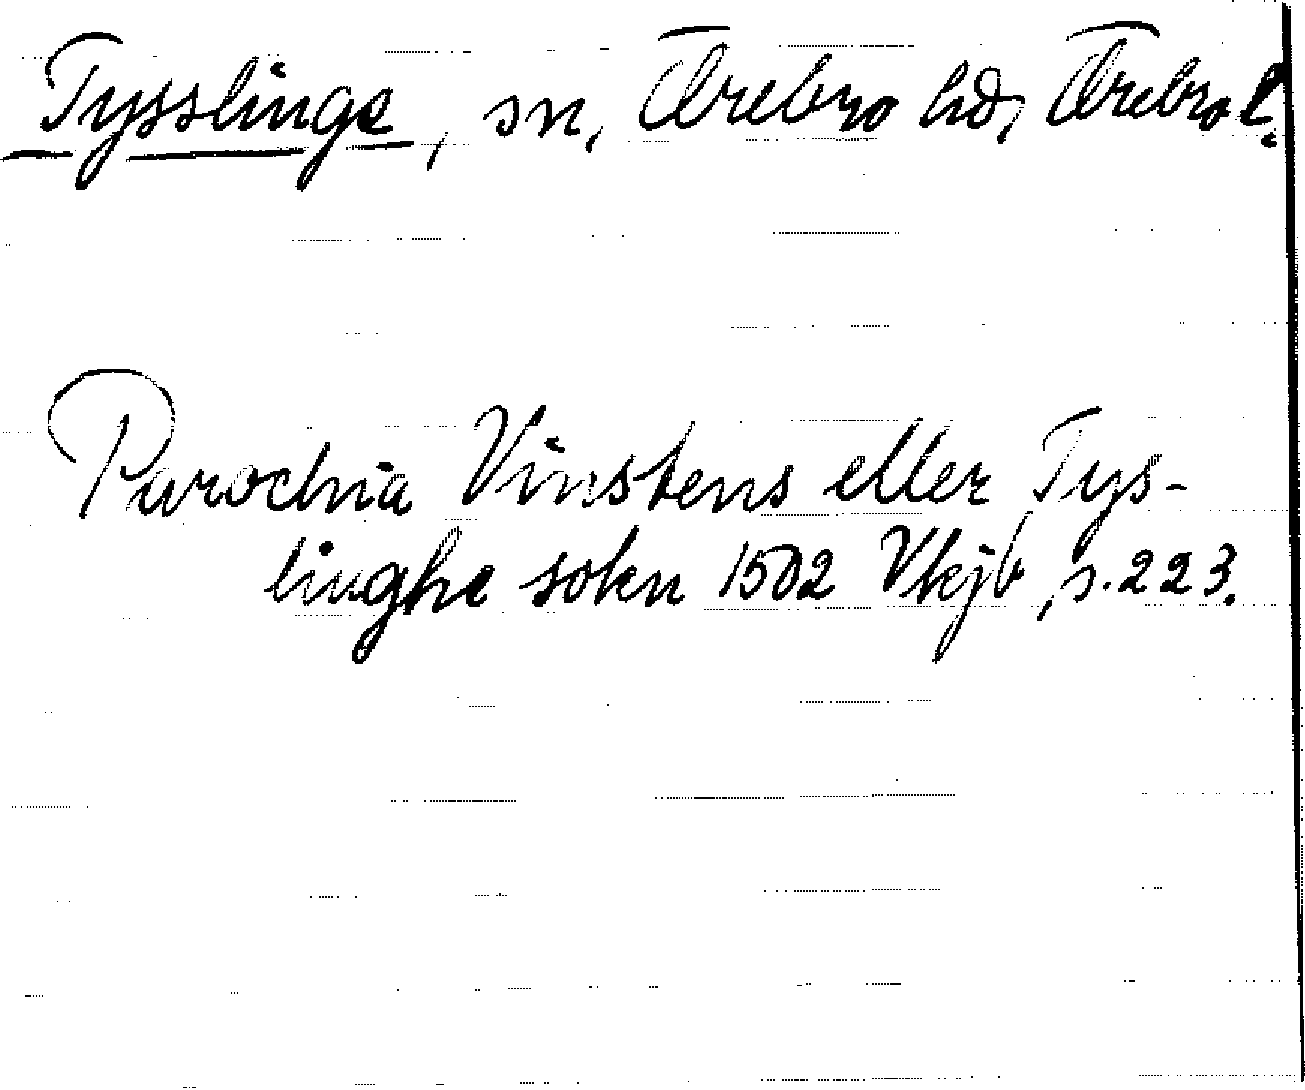 Tysslinge, sn, Örebro hd, Örebro l.
Parochia Vinstens eller Tys-
linghe sokn 1502 Vkjb, s. 223.